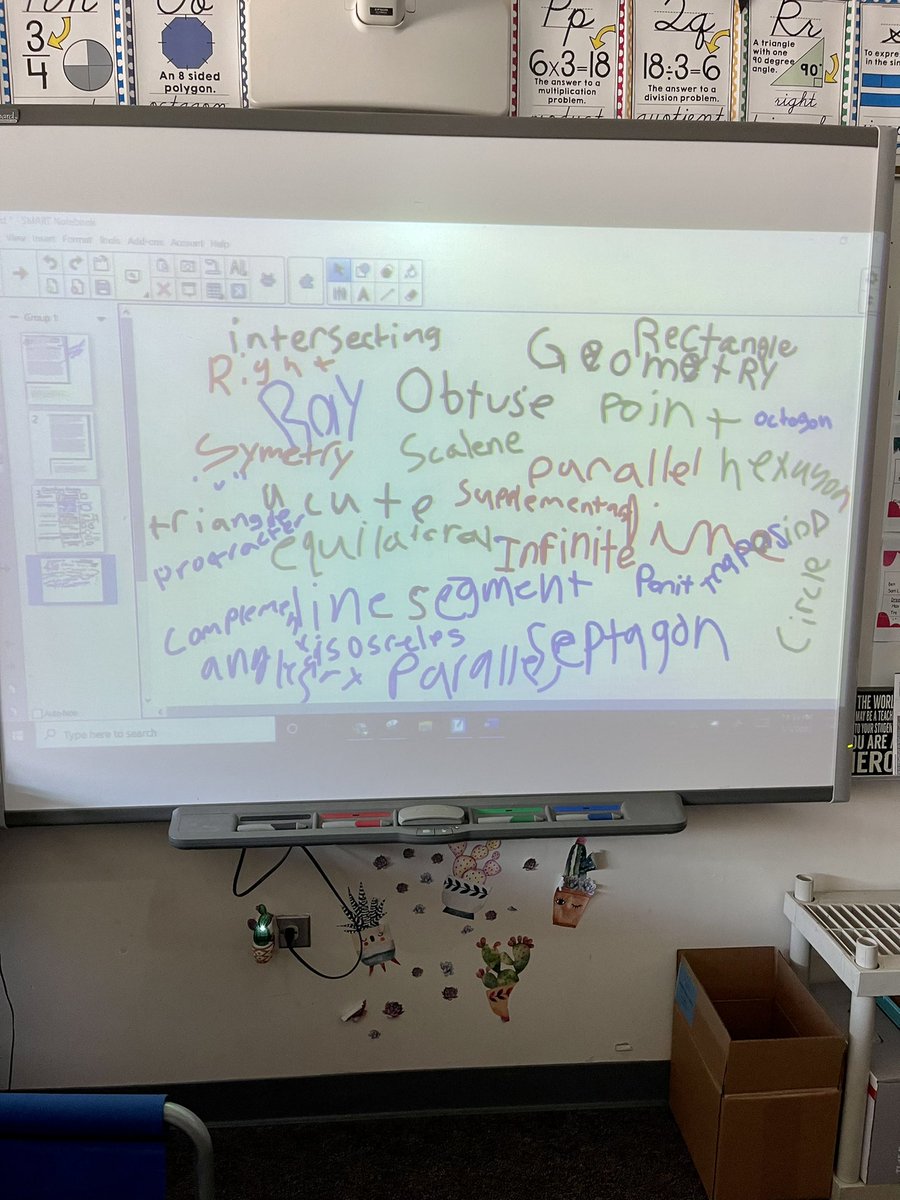 3
4
An 8 sided
polygon.
octagon
Pp
6x3=18
The answer to a
multiplication
problem.
product
Qq
18÷3=6
The answer to a
division problem.
quotient
Rr
A triangle
with one
90 degree
angle.
90°
right
To expre
in the sin
SMART Notebook
View Insert Format Tools Add-ons Account Help
Group 1
2
intersecting
Rectangle
Geometry
Right
Ray
Obtuse
Point
octagon
Symetry
Scalene
parallel
hexagon
acute
triangle
protracter
equilateral
Infinite
line segment
Penit
Circle
isosceles
Parallel
Septagon
Type here to search
THE WORL
MAY BE A TEACH
TO YOUR STUDEN
OU ARE A
HERO